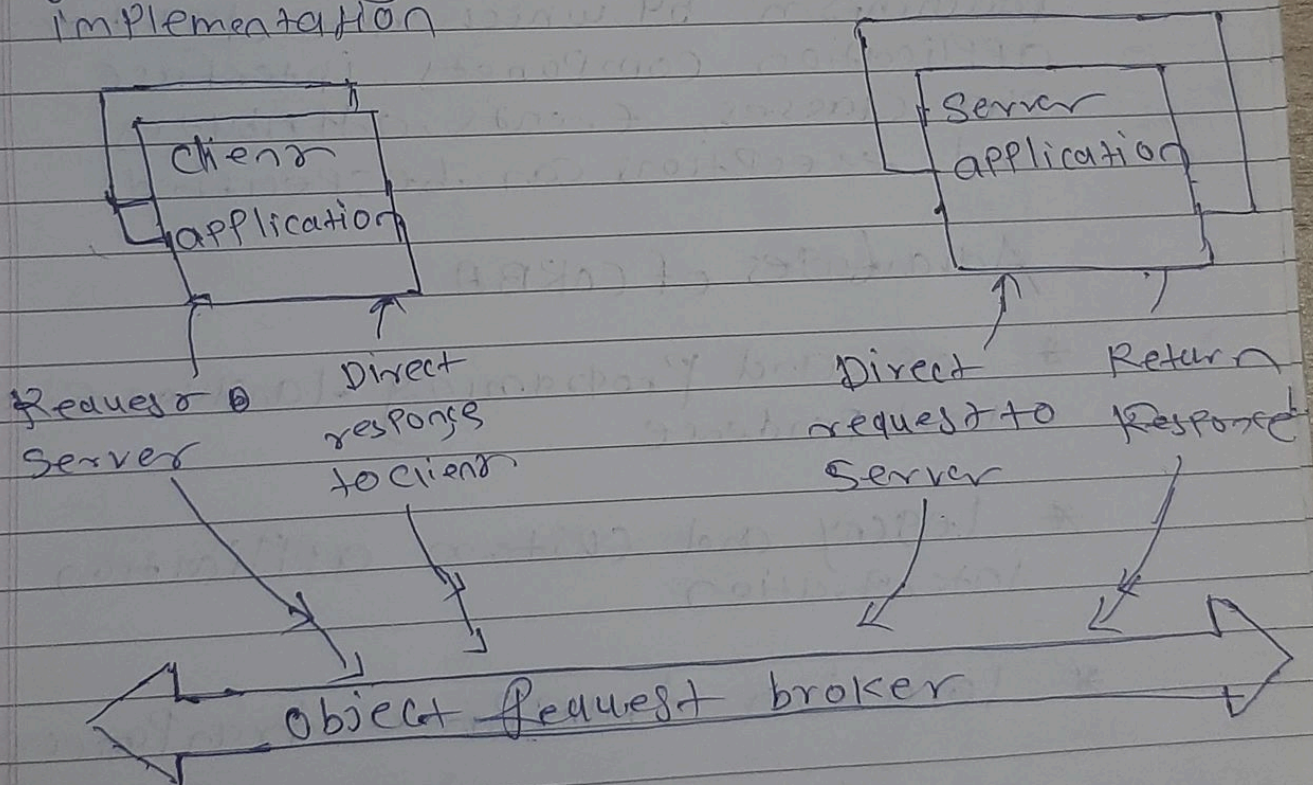 implementation
Client
application
Server
application
Request
Server
Direct
response
to client
Direct
request to
Server
Return
Response
Object Request broker